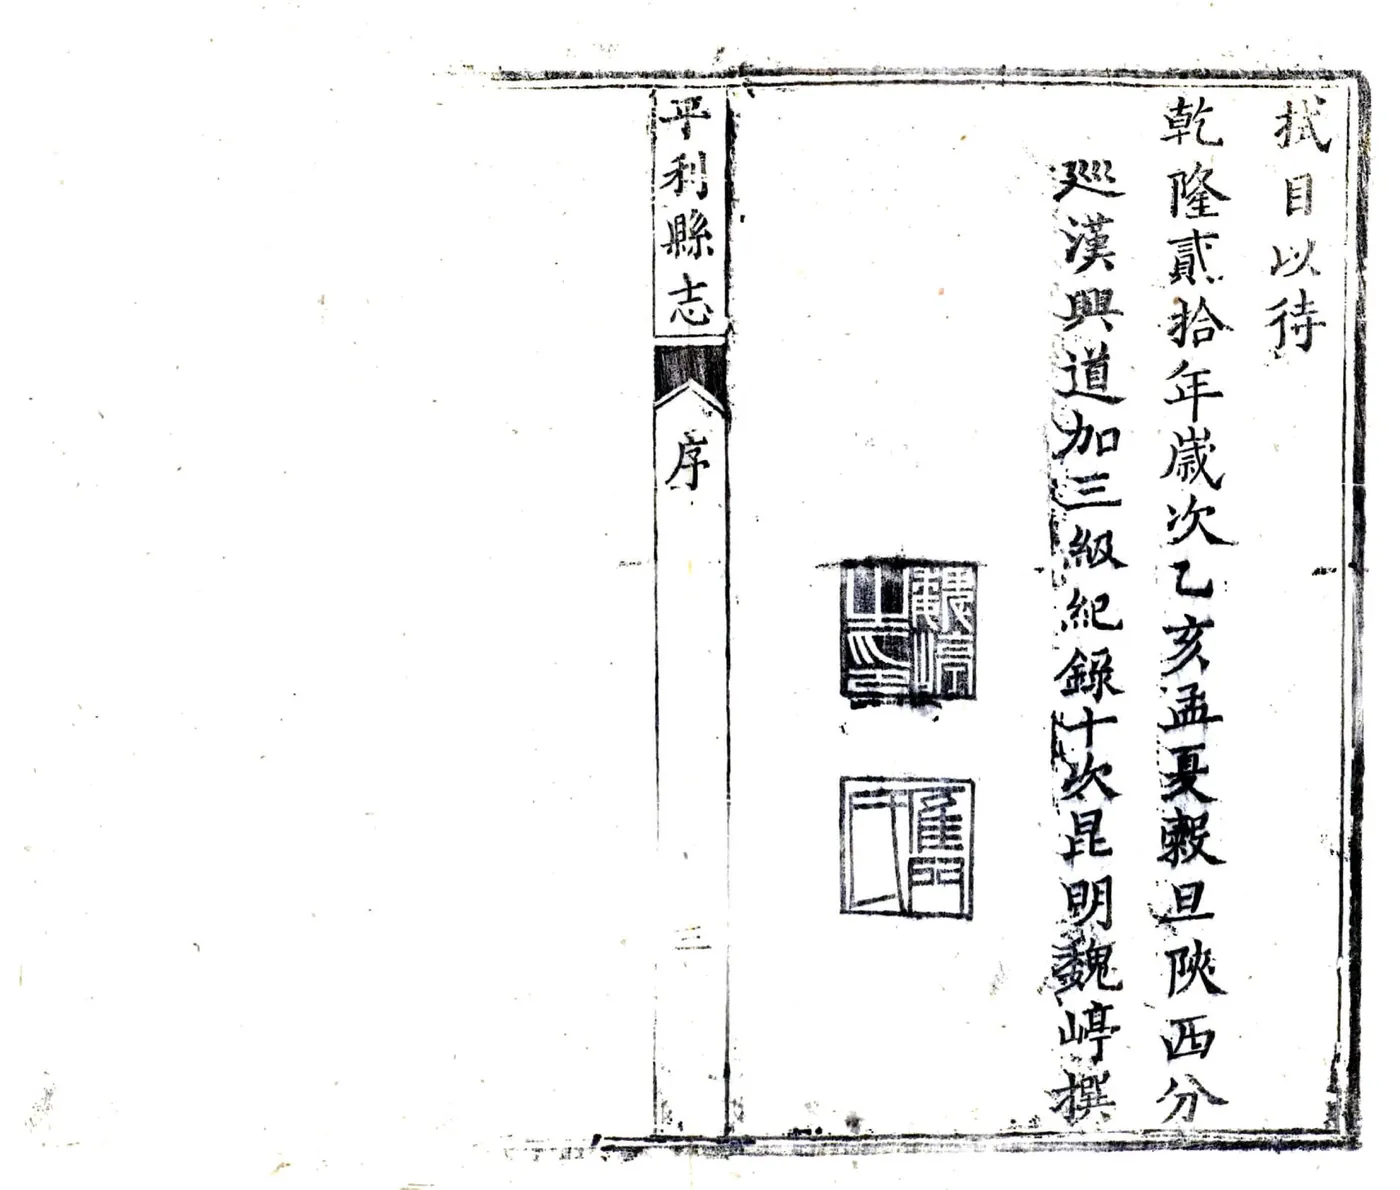 拭目以待
乾隆貳拾年歲次乙亥孟夏穀旦陝西分
巡漢興道加三級紀錄十次昆明魏㟭撰
魏㟭
之印
平利縣志
序
三